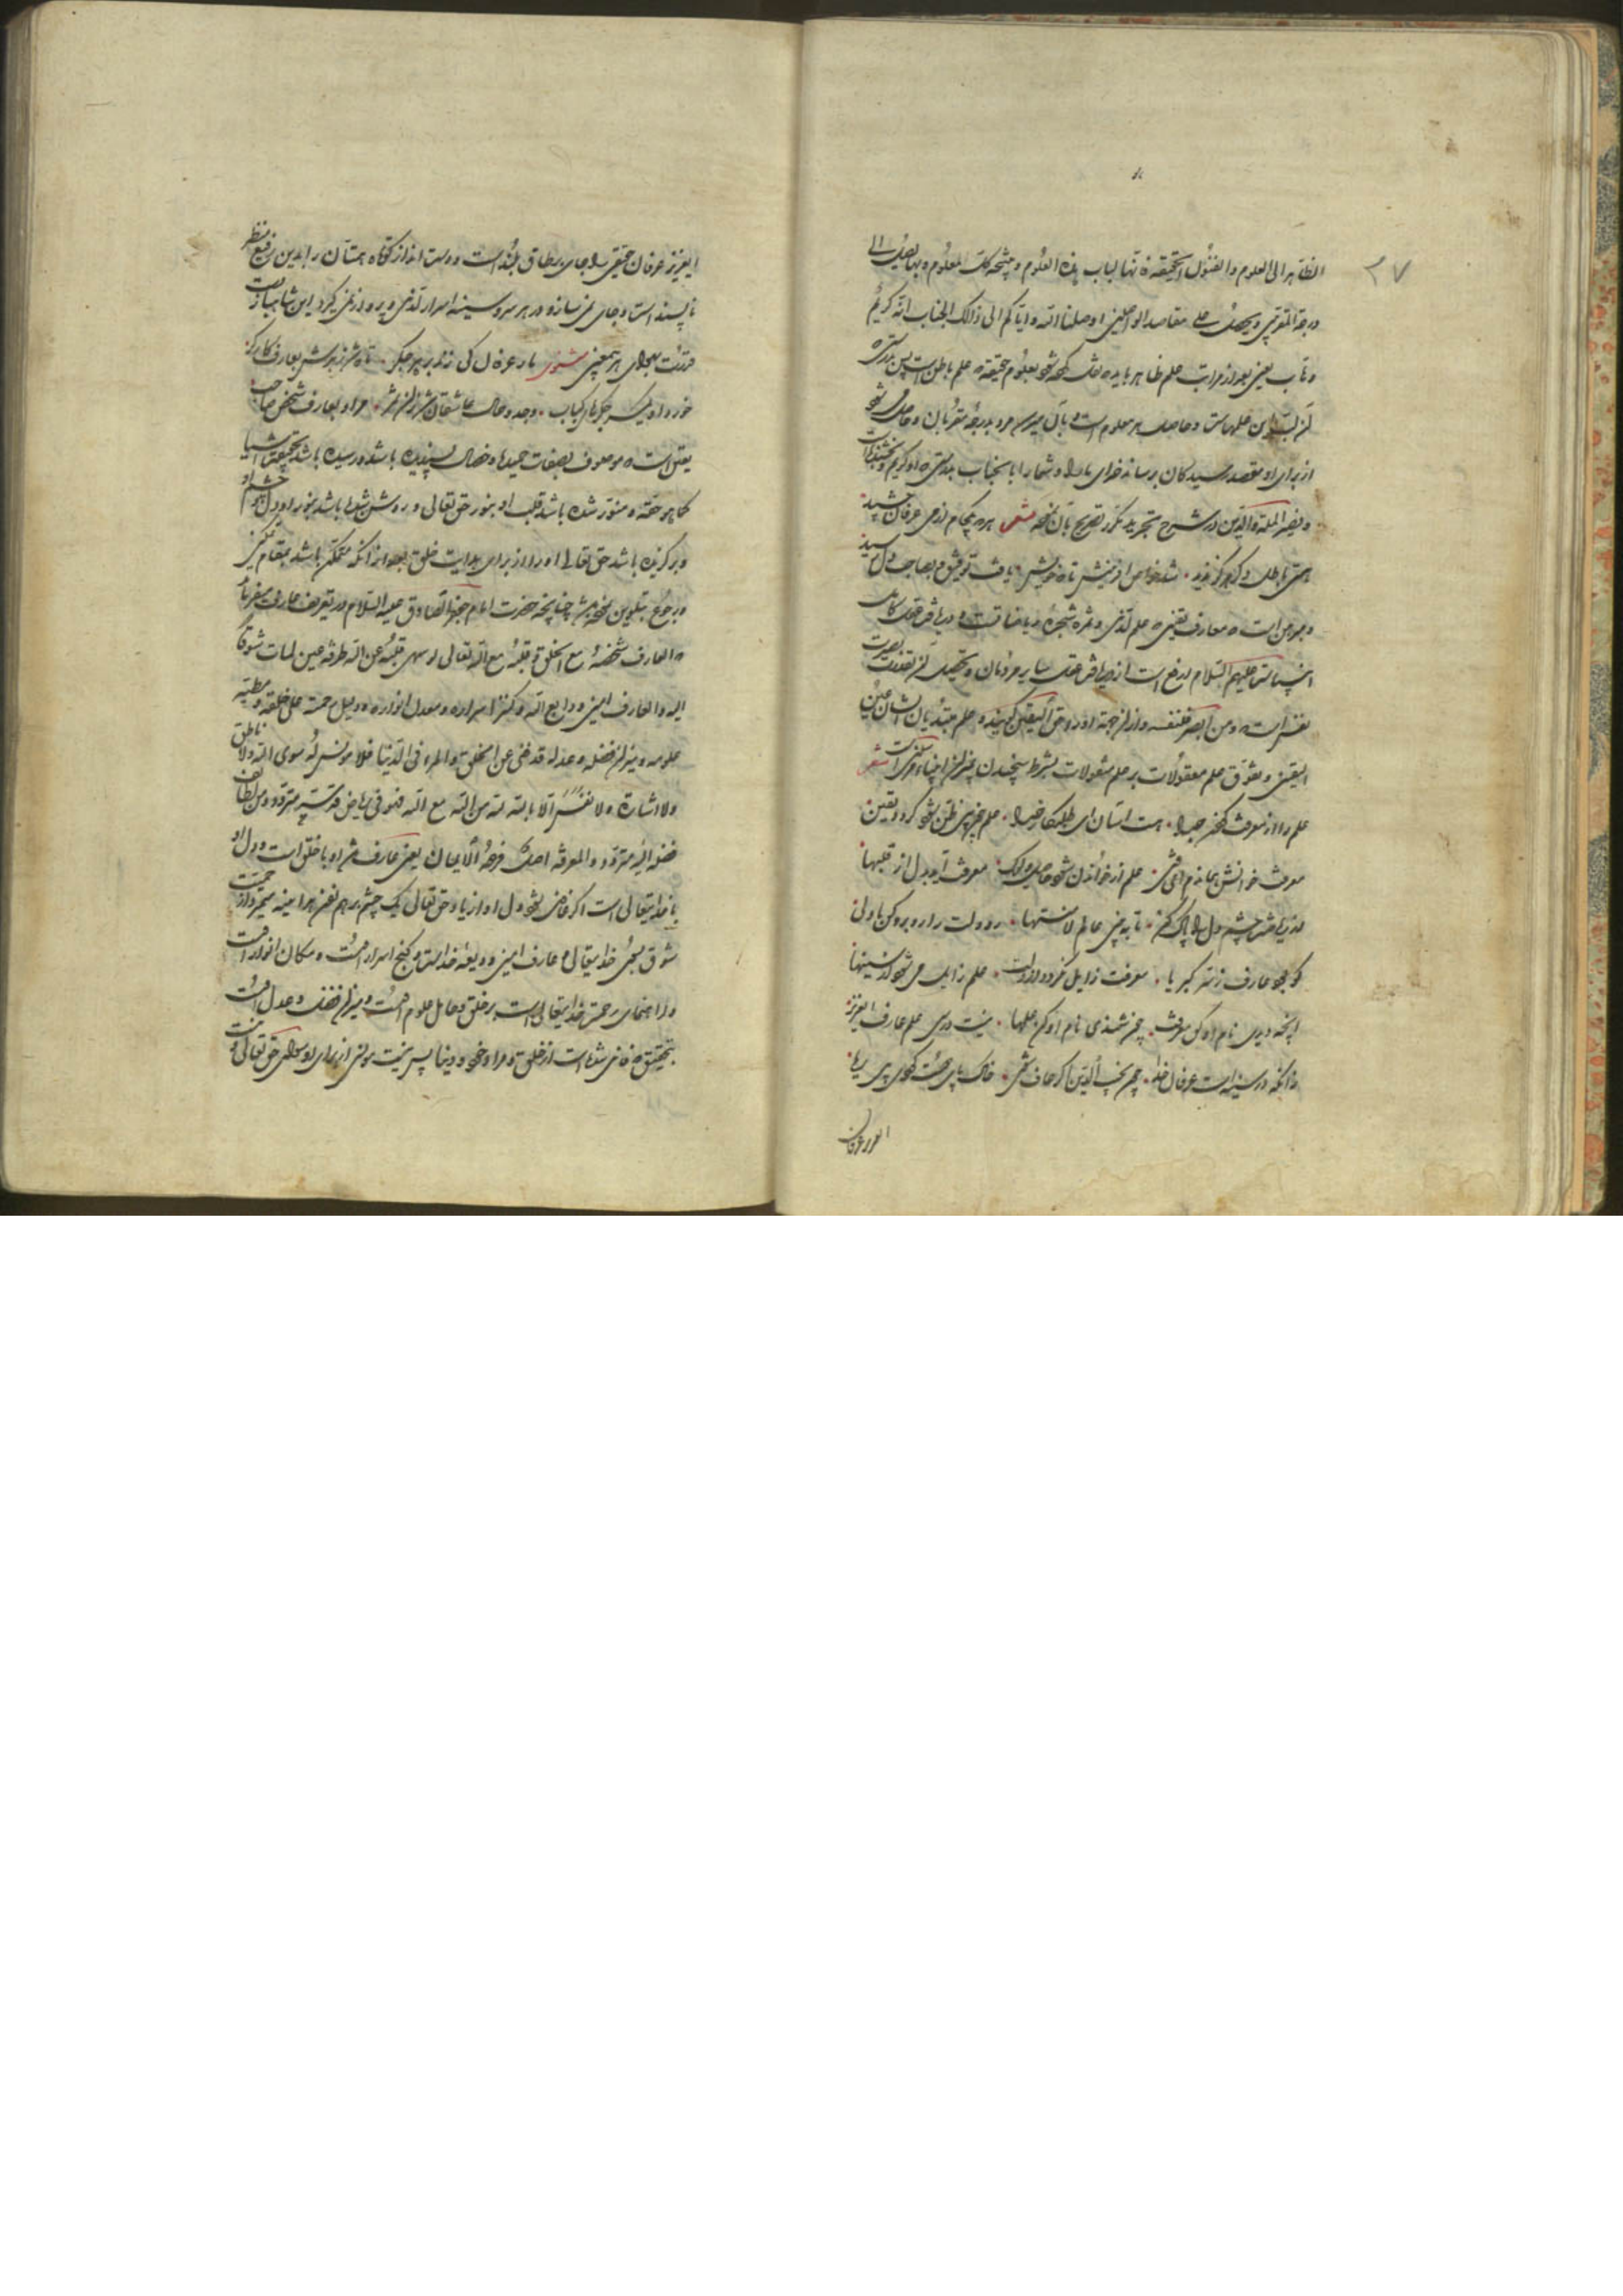 ۲۷
الظاهر الی العلوم والفنون الحقیقة فانها لباب هذه العلوم و نتیجة کلک المعلوم و بها یصل الی
درجة المقربین ویحصل علی مقاصد الواصلین اوصلنا الله وایاکم الی ذلک الجناب انه کریم
وهاب یعنی بعد از مراتب علم ظاهر باید مشغول شود بعلوم حقیقة که علم باطن است پس بدرستی که
آن لب این علمهاست و حاصل هر معلوم است و بآن میرسد مرد بدرجه مقربان و حاصل میشود
از برای او مقصد رسیدکان برساند خدای ما را و شما را بآنجناب بدرستی که او کریم و بخشنده است
و نصیر الملة والدین در شرح تجرید تصریح بآن نموده شعر هر که جام از می عرفان چشید
هستی باطل دکر نزد او شد خواص آفرینش تا خویش یافت توفیق و بصاحب دل رسید
و مبرهن است که معارف یقینی که علم لدنی و ثمره شجره ریاضات است دریافت عقل کامل
انبیاست علیهم السلام ارفع است از دریافت عقل سایر مردمان و تحصیل آن بقدر بصیرت
نفس است و من ابصر فلنفسه و از این جهة او را حق الیقین کویند و علم مبتدیان ایشان عین
الیقین و تفوق علم معقولات بر علم منقولات بشرط سنجیدن بمیزان انبیاء مرئی است شعر
علم را از معرفت جدا هست استان ای طلبکار خدا علم خبر بی ظن نشود کرد یقین
معرفت خوانش بمانم ای فتی علم از خواندن شود حاصل ولیک معرفت آید بدل از قلبها
از ریاضت چشم دل را پاک کن تا به بینی عالم لا منتها رو دلت را روبرو کن با ولی
کو بود عارف ز ذات کبریا معرفت زایل نکردد از دلت علم زایل می شود از سینها
آنچه دیدی نام او کن معرفت چون شنیدی نام او کن علمها نیست درسی علم عارف ای عزیز
زانکه در سینه است عرفان خدا چو نجیب الدین اکر عارف شدی خاک پای حق شوی بی ریا
ای عزیز عرفان
ای عزیز عرفان حقیقی را جای بر طاق بلند است و دست انداز کوتاه همتان را بدین رفیع منظر
ناپسند است و جای نمی سازد در هر سر و سینه اسرار لدنی و پرواز نمی کیرد این شاهباز دست
قدرت بهوای هر همچنین مثنوی باز عرفان کی زند بر هر جکر تا نشد از هر بشر بعارف کارکر
خورد او لیک جکرهای کباب وجد و حال عاشقان شد زان اثر مراد بعارف شخص صاحب
یقین است که موصوف بصفات حمیده و خصال پسندیده باشد و رسیده باشد بحقیقت اشیا
کما هو حقه و منور شده باشد قلب او بنور حق تعالی و روشن شده باشد بنور او دل و چشم او
و برکزیده باشد حق تعالی او را از برای هدایت خلق بعد از آنکه متمکن باشد بمقام تمکین
و رجوع بتلوین نموده باشد چنانچه حضرت امام جعفر الصادق علیه السلام در تعریف عارف میفرماید
که العارف شخصه مع الخلق و قلبه مع الله تعالی لو سهی قلبه عن الله طرفة عین لمات شوقا
الیه والعارف امین ودایع الله وکنز اسراره ومعدن انواره ودلیل رحمته علی خلقه ومطیة
علومه ومیزان فضله وعدله قد غنی عن الخلق والمراد فی الدنیا فلا مونس له سوی الله ولا ناطق
ولا اشارة ولا نفس الا بالله لله من الله مع الله فهو فی ریاض قدسه متردد ومن لطائف
فضله الیه متزود والمعرفة اصل فرعه الایمان یعنی عارف تن او با خلق است و دل او
با خدایتعالی است اکر غافل شود دل او از یاد حق تعالی یک چشم بر هم زدن هر آینه میمیرد از جهت
شوق بسوی خدایتعالی و عارف امین ودیعهٔ خداست و کنج اسرار اوست و مکان انوار اوست
و راهنمای رحمت خدایتعالی است بر خلق و حامل علوم اوست و میزان فضل و عدل اوست
بتحقیق که غنی شده است از خلق و مراد خود در دنیا پس نیست مونس از برای او سوای حق تعالی و نیست